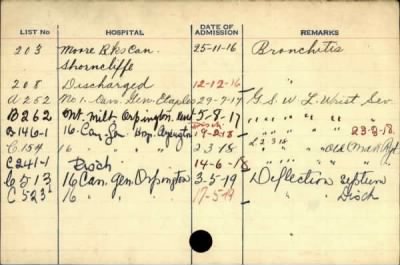 LIST NO HOSPITAL DATE OF ADMISSION REMARKS
203 Moore Bks Can. 25-11-16 Bronchitis
Shorncliffe
208 Discharged 12-12-16 "
A252 No 1. Can. Gen. Etaples 29-7-17 G S W L. Wrist Sev.
B262 Ont. Milty Orpington 5-8-17 " " " "
B146-1 16. Can Hosp. Orpington 19-2-18 " " " 23-2-18
C154 16 " " " 2 3 18 " " " Old
C241-1 Disch 14-6-18 " " "
C513 16 Can. Gen. Orpington 3-5-19 Deflection septum
C523 16 " " " 17-5-19 " " Disch